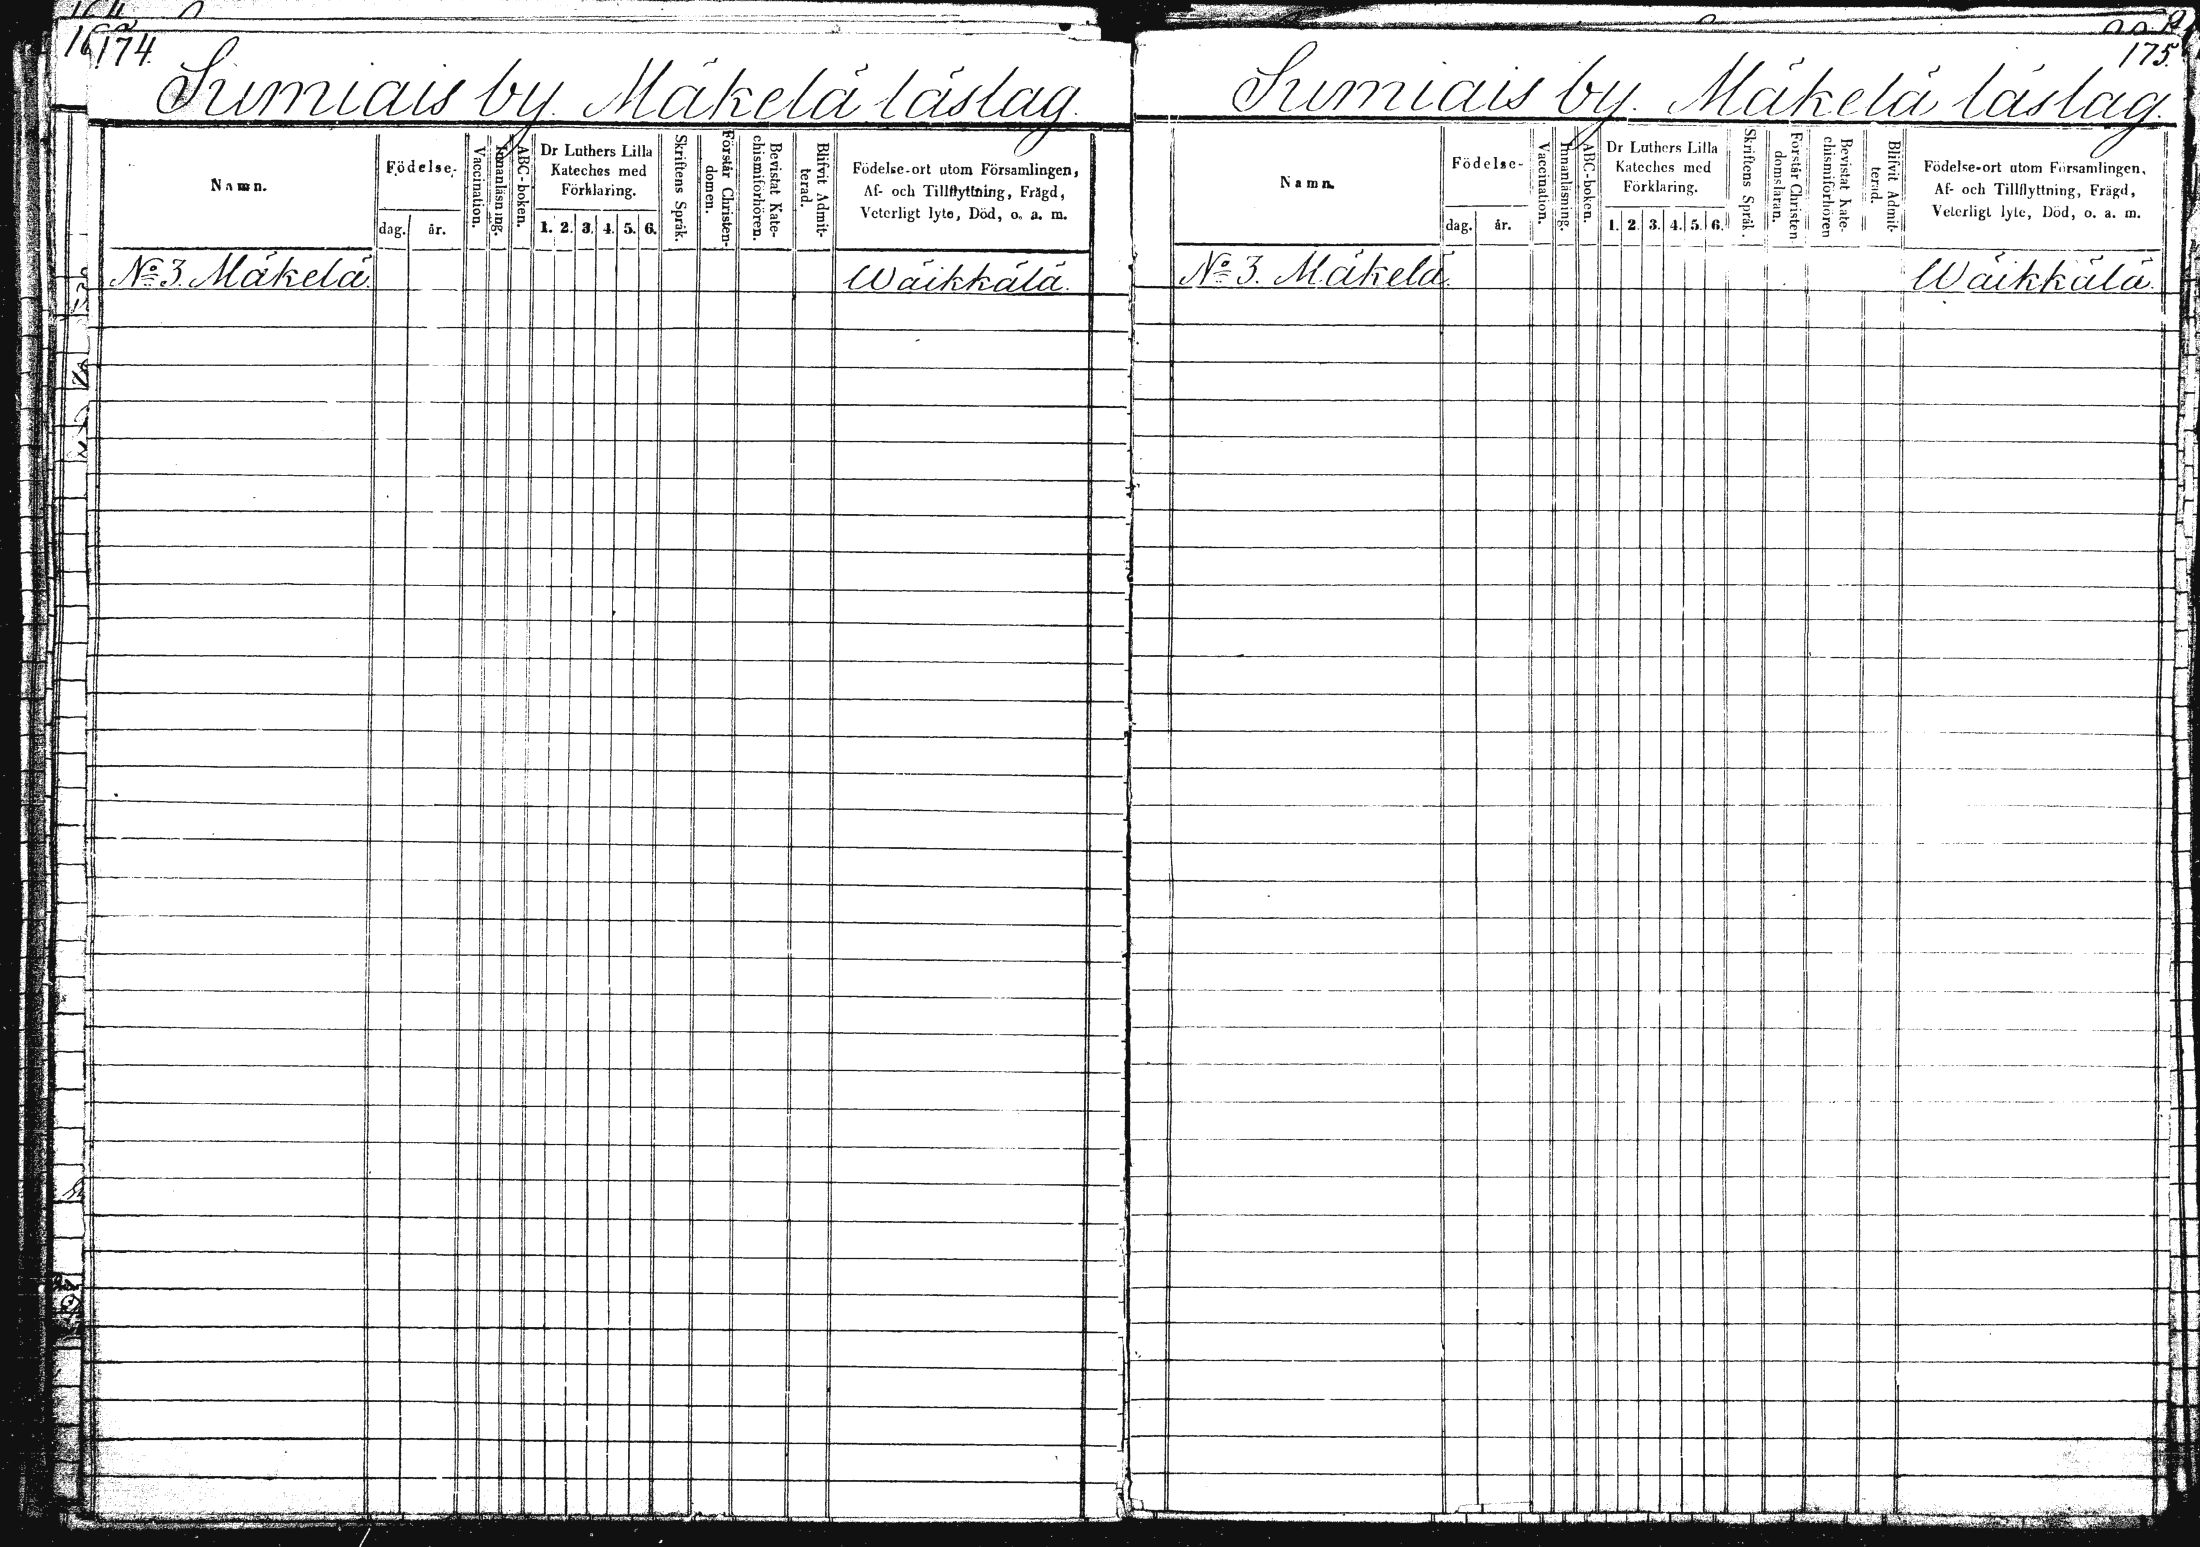 174.
Sumiais by. Mäkelä läslag.
Namn.
Födelse-
dag. år.
Vaccination.
Innanläsning.
ABC-boken.
Dr Luthers Lilla
Kateches med
Förklaring.
1. 2. 3. 4. 5. 6.
Skriftens Språk.
Förstår Christen-
domen.
Bevistat Kate-
chismiförhören.
Blifvit Admit-
terad.
Födelse-ort utom Församlingen,
Af- och Tillflyttning, Frägd,
Veterligt lyte, Död, o. a. m.
No 3. Mäkelä. Wäikkälä.
175.
Sumiais by. Mäkelä läslag.
Namn.
Födelse-
dag. år.
Vaccination.
Innanläsning.
ABC-boken.
Dr Luthers Lilla
Kateches med
Förklaring.
1. 2. 3. 4. 5. 6.
Skriftens Språk.
Förstår Christen-
domsläran.
Bevistat Kate-
chismiförhören
Blifvit Admit-
terad.
Födelse-ort utom Församlingen,
Af- och Tillflyttning, Frägd,
Veterligt lyte, Död, o. a. m.
No 3. Mäkelä. Wäikkälä.